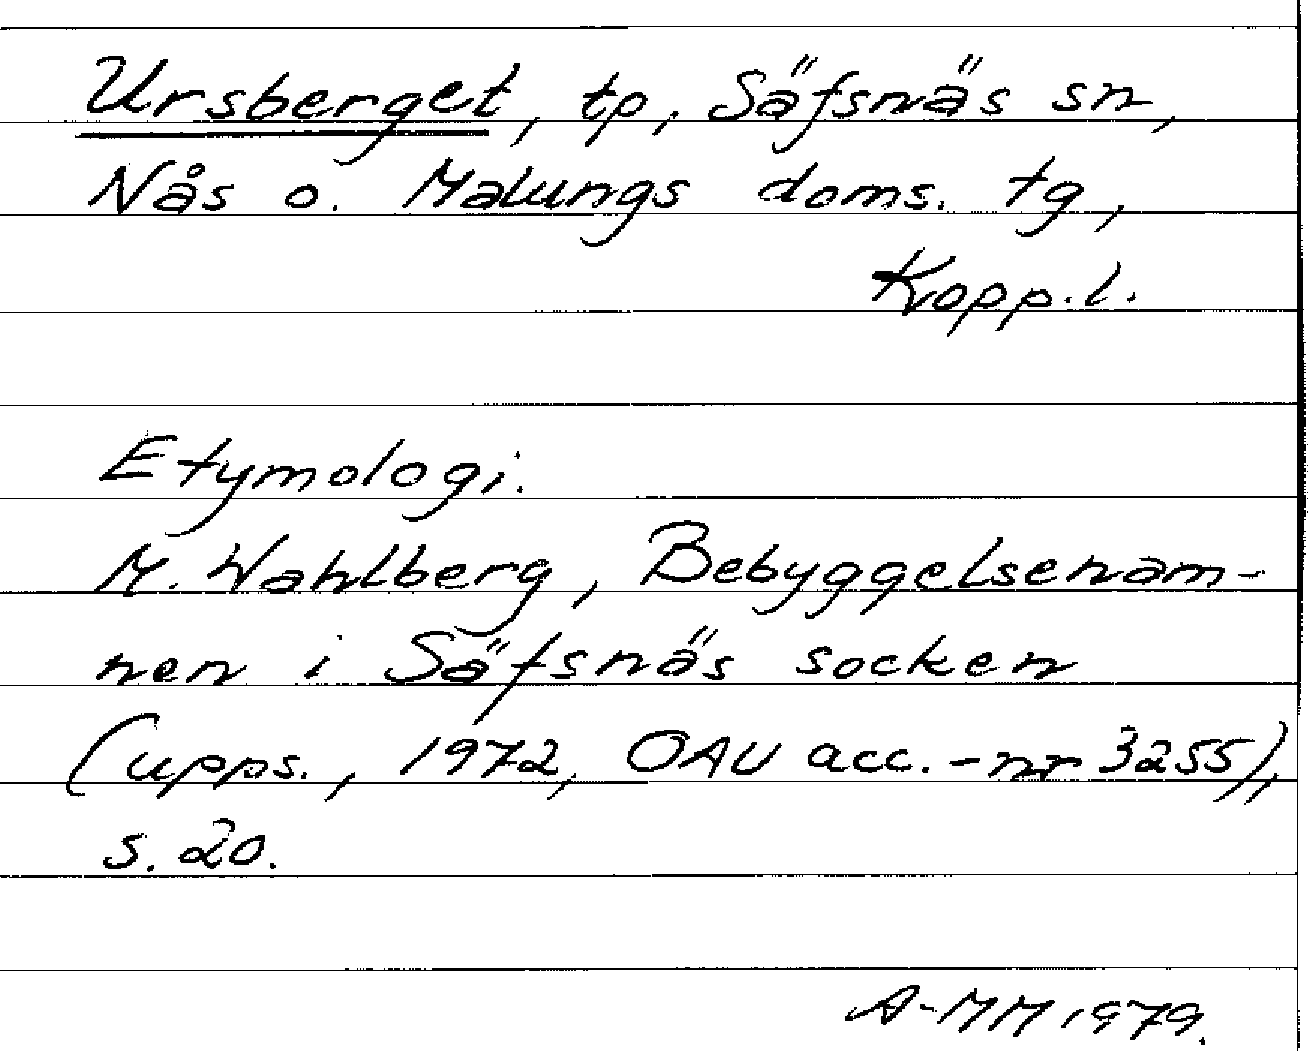 Ursberget, tp, Säfsnäs sn,
Nås o. Malungs doms. tg,
Kopp.l.
Etymologi:
M. Wahlberg, Bebyggelsenam-
nen i Säfsnäs socken
(upps., 1972, OAU acc.-nr 3255),
s. 20.
A-MM 1979.